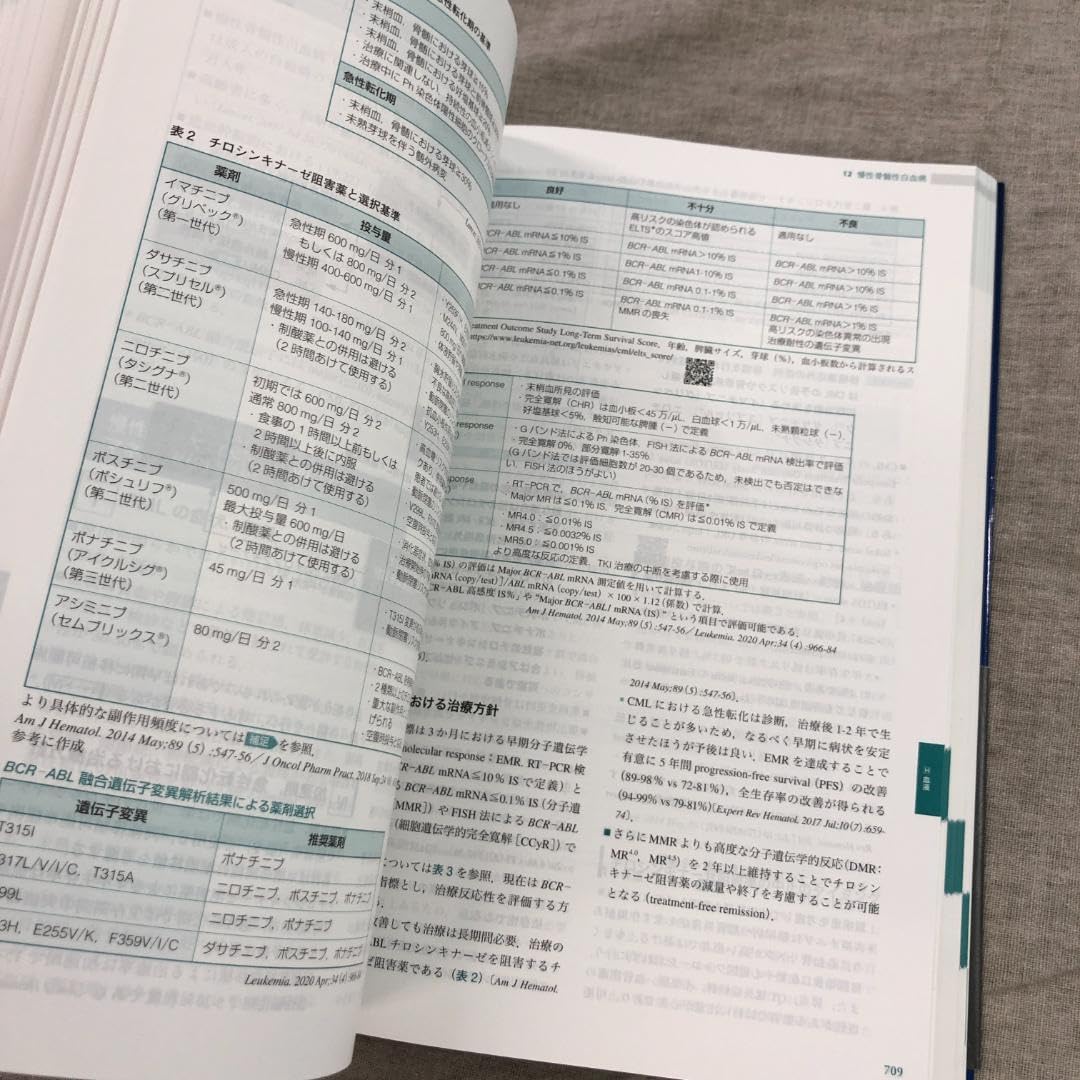 性転化期の基準
・末梢血，骨髄における芽球
・末梢血，骨髄における
・末梢血
・治療に関連しない，持続性の血小板
・治療中に Ph 染色体陽性細胞のクロ
急性転化期
・末梢血，骨髄における芽球≧30%
・未熟芽球を伴う髄外病変
表2 チロシンキナーゼ阻害薬と選択基準
薬剤
投与量
イマチニブ
（グリベック®）
（第一世代）
急性期 600 mg/日 分1
もしくは 800 mg/日 分2
慢性期 400-600 mg/日 分1
ダサチニブ
（スプリセル®）
（第二世代）
急性期 140-180 mg/日 分2
慢性期 100-140 mg/日 分1
・制酸薬との併用は避ける
（2時間あけて使用する）
ニロチニブ
（タシグナ®）
（第二世代）
初期では 600 mg/日 分2
通常 800 mg/日 分2
・食事の1時間以上前もしくは
2時間以上後に内服
・制酸薬との併用は避ける
（2時間あけて使用する）
ボスチニブ
（ボシュリフ®）
（第二世代）
500 mg/日 分1
最大投与量 600 mg/日
・制酸薬との併用は避ける
（2時間あけて使用する）
ポナチニブ
（アイクルシグ®）
（第三世代）
45 mg/日 分1
アシミニブ
（セムブリックス®）
80 mg/日 分2
・T315I
・BCR-ABL
・2種類以上の
より具体的な副作用頻度については 補足 を参照．
Am J Hematol. 2014 May;89 (5) :547-56／J Oncol Pharm Pract. 2018 Sep;24
参考に作成
BCR-ABL 融合遺伝子変異解析結果による薬剤選択
遺伝子変異
推奨薬剤
T315I
ポナチニブ
317L/V/I/C，T315A
ニロチニブ，ボスチニブ，ポナチニブ
99L
ニロチニブ，ポナチニブ
3H，E255V/K，F359V/I/C
ダサチニブ，ボスチニブ，ポナチニブ
Leukemia. 2020 Apr;34 (4) :966-84
12 慢性骨髄性白血病
良好
不十分
不良
適用なし
高リスクの染色体が認められる
ELTS*のスコア高値
適用なし
BCR-ABL mRNA≦10% IS
BCR-ABL mRNA＞10% IS
BCR-ABL mRNA＞10% IS
BCR-ABL mRNA≦1% IS
BCR-ABL mRNA1-10% IS
BCR-ABL mRNA＞10% IS
BCR-ABL mRNA≦0.1% IS
BCR-ABL mRNA 0.1-1% IS
BCR-ABL mRNA＞1% IS
BCR-ABL mRNA≦0.1% IS
BCR-ABL mRNA 0.1-1% IS
MMR の喪失
BCR-ABL mRNA＞1% IS
高リスクの染色体異常の出現
治療耐性の遺伝子変異
eatment Outcome Study Long-Term Survival Score，年齢，脾臓サイズ，芽球（%），血小板数から計算されるス
https://www.leukemia-net.org/leukemias/cml/elts_score/
response
・末梢血所見の評価
・完全寛解（CHR）は血小板＜45万/μL，白血球＜1万/μL，未熟顆粒球（−），
好塩基球＜5%，触知可能な脾腫（−）で定義
response
・Gバンド法による Ph 染色体，FISH 法による BCR-ABL mRNA 検出率で評価
・完全寛解 0%，部分寛解 1-35%
（Gバンド法では評価細胞数が 20-30 個であるため，未検出でも否定はできな
い，FISH 法のほうがよい）
response
・RT-PCR で，BCR-ABL mRNA（% IS）を評価*
・Major MR は≦0.1% IS，完全寛解（CMR）は≦0.01% IS で定義
・MR4.0：≦0.01% IS
・MR4.5：≦0.0032% IS
・MR5.0：≦0.001% IS
より高度な反応の定義，TKI 治療の中断を考慮する際に使用
% IS）の評価は Major BCR-ABL mRNA 測定値を用いて計算する．
mRNA (copy/test)]/ABL mRNA (copy/test) × 100 × 1.12（係数）で計算．
BCR-ABL 高感度 IS%」や“Major BCR-ABL1 mRNA (IS)”という項目で評価可能である．
Am J Hematol. 2014 May;89 (5) :547-56／Leukemia. 2020 Apr;34 (4) :966-84
における治療方針
標は3か月における早期分子遺伝学
molecular response：EMR. RT-PCR 検
CR-ABL mRNA≦10% IS で定義）と
る BCR-ABL mRNA≦0.1% IS（分子遺
[MMR]）や FISH 法による BCR-ABL
（細胞遺伝学的完全寛解［CCyR]）で
については表3を参照，現在は BCR-
指標とし，治療反応性を評価する方
改善しても治療は長期間必要，治療の
ABL チロシンキナーゼを阻害するチ
ゼ阻害薬である（表2）〔Am J Hematol.
2014 May;89 (5) :547-56〕．
▪ CML における急性転化は診断，治療後 1-2 年で生
じることが多いため，なるべく早期に病状を安定
させたほうが予後は良い．EMR を達成することで
有意に5年間 progression-free survival (PFS) の改善
(89-98% vs 72-81%)，全生存率の改善が得られる
(94-99% vs 79-81%)〔Expert Rev Hematol. 2017 Jul;10(7) :659-
74〕．
■さらに MMR よりも高度な分子遺伝学的反応（DMR：
MR4.0，MR4.5）を2年以上維持することでチロシン
キナーゼ阻害薬の減量や終了を考慮することが可能
となる（treatment-free remission）．
H 血液
709